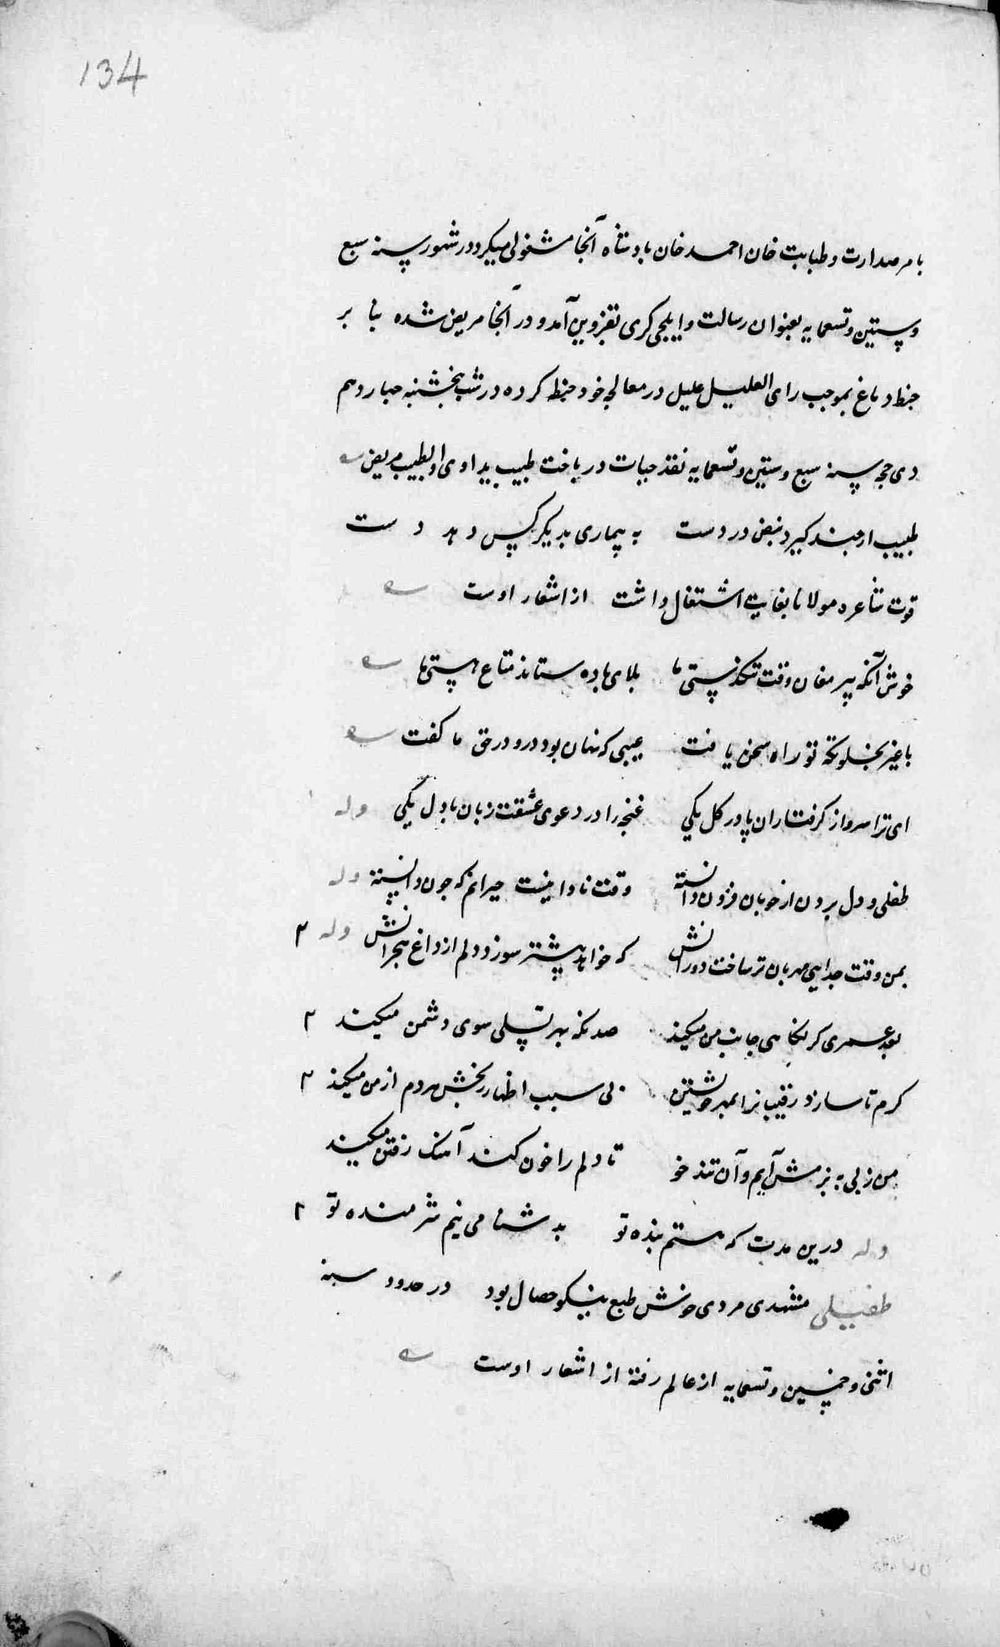 134
بامر صدارت و طبابت خان احمد خان بادشاه آنجا مشغولی میکرد و در شهور سنه سبع
و ستین و تسعمایه بعنوان رسالت و ایلچی کری بقزوین آمد و در آنجا مریض شده بنا بر
خبط دماغ بموجب رای العلیل علیل در معالجه خود خبط کرده در شب پنجشنبه چهاردهم
ذی حجه سنه سبع و ستین و تسعمایه نقد حیات در باخت طبیب یداوی و الطبیب مریض
طبیب ارچند کیرد نبض در دست به بیماری بدیکر کس دهد دست
قوت شاعره مولانا بغایت اشتغال داشت از اشعار اوست
خوش آنکه پیر مغان وقت تنکدستی ما بلای باده ستاند متاع هستی ما
با غیر بخلوتکه تو راه سخن یافت عیبی که نهان بود درو در حق ما کفت
ای ترا سرو از کرفتاران پا در کل یکی غنچه را در دعوی عشقت زبان با دل یکی وله
طفلی و دل بردن از خوبان فزون دانسته وقت نادانیست حیرانم که چون دانسته وله
بمن وقت جدایی مهربان تر ساخت دورانش که خواهد بیشتر سوزد دلم از داغ هجرانش وله ۲
بعد عمری کر نکاهی جانب من میکند صد نکه بهر تسلی سوی دشمن میکند ۲
کرم تا سازد رقیبانرا بمهر خویشتن بی سبب اظهار رنجش مردم از من میکند ۲
من ز پی به بزمش آیم و آن تند خو تا دلم را خون کند آهنک رفتن میکند
وله درین مدت که هستم بنده تو بد شنامی نیم شرمنده تو ۲
طفیلی مشهدی مردی خوش طبع نیکو خصال بود در حدود سنه
اثنی و خمسین و تسعمایه از عالم رفته از اشعار اوست